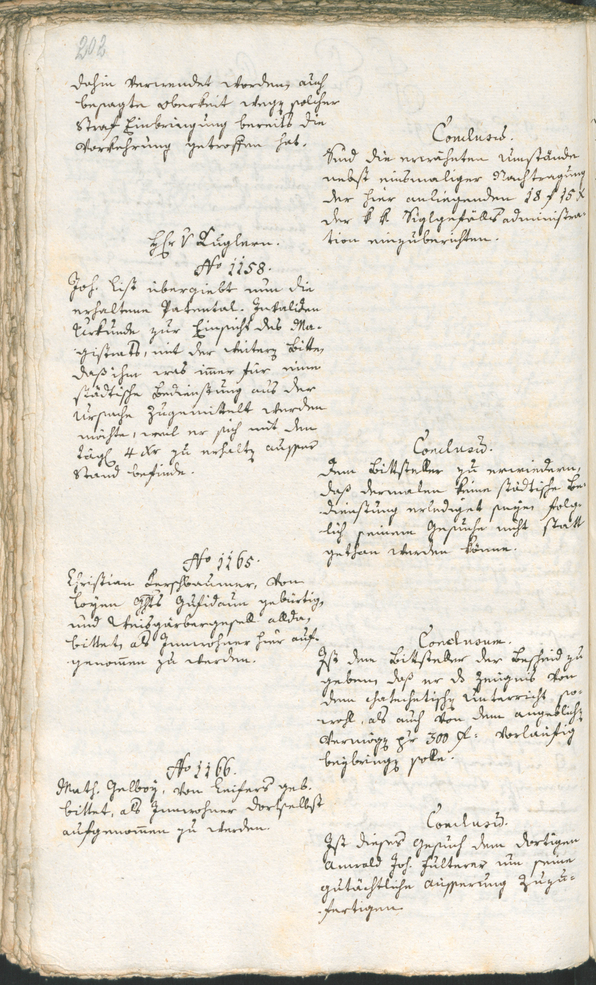 202
dahin verwendet worden, auch
besagte Oberkeit wegen solcher
Straf Einbringung bereits die
Vorkehrung getroffen hat.
Conclusum.
Sind die erwähnten Umstände
nebst einsmaliger Nachtragung
der hier anliegenden 18 f 15 x
der k k Siglgefällsadministra-
tion einzuberichten.
Hr v Kuglern.
No 1158.
Joh. List übergiebt nun die
erhaltene Patental. Invaliden
Urkunde zur Einsicht des Ma-
gistrats, mit der weitern Bitte,
daß ihm was immer für eine
städtische Bedienstung aus der
Ursache zugemittelt werden
möchte, weil er sich mit den
tägl 4 xr zu erhalten ausser
Stand befinde.
Conclusum.
Dem Bittsteller zu erwiedern,
daß dermalen keine städtische Be-
dienstung erlediget seye, folg-
lich seinem Gesuche nicht statt
gethan werden könne.
No 1165.
Christian Kerschbaumer, von
Layen Ghts Gufidaun gebürtig,
und Weisgärbergesell allda,
bittet, als Innwohner hier auf-
genommen zu werden.
Conclusum.
Ist dem Bittsteller der Bescheid zu
geben, daß er das Zeugnis von
dem chatechetischen Unterricht so-
wohl, als auch von dem angeblichen
Vermögen pr 300 f: vorläufig
beybringen solle.
No 1166.
Math. Gelboy, von Leifers geb.
bittet, als Innwohner dortselbst
aufgenommen zu werden.
Conclusum.
Ist dieses Gesuch dem dortigen
Anwald Joh. Fulterer um seine
gutächtliche Äusserung zuzu-
fertigen.